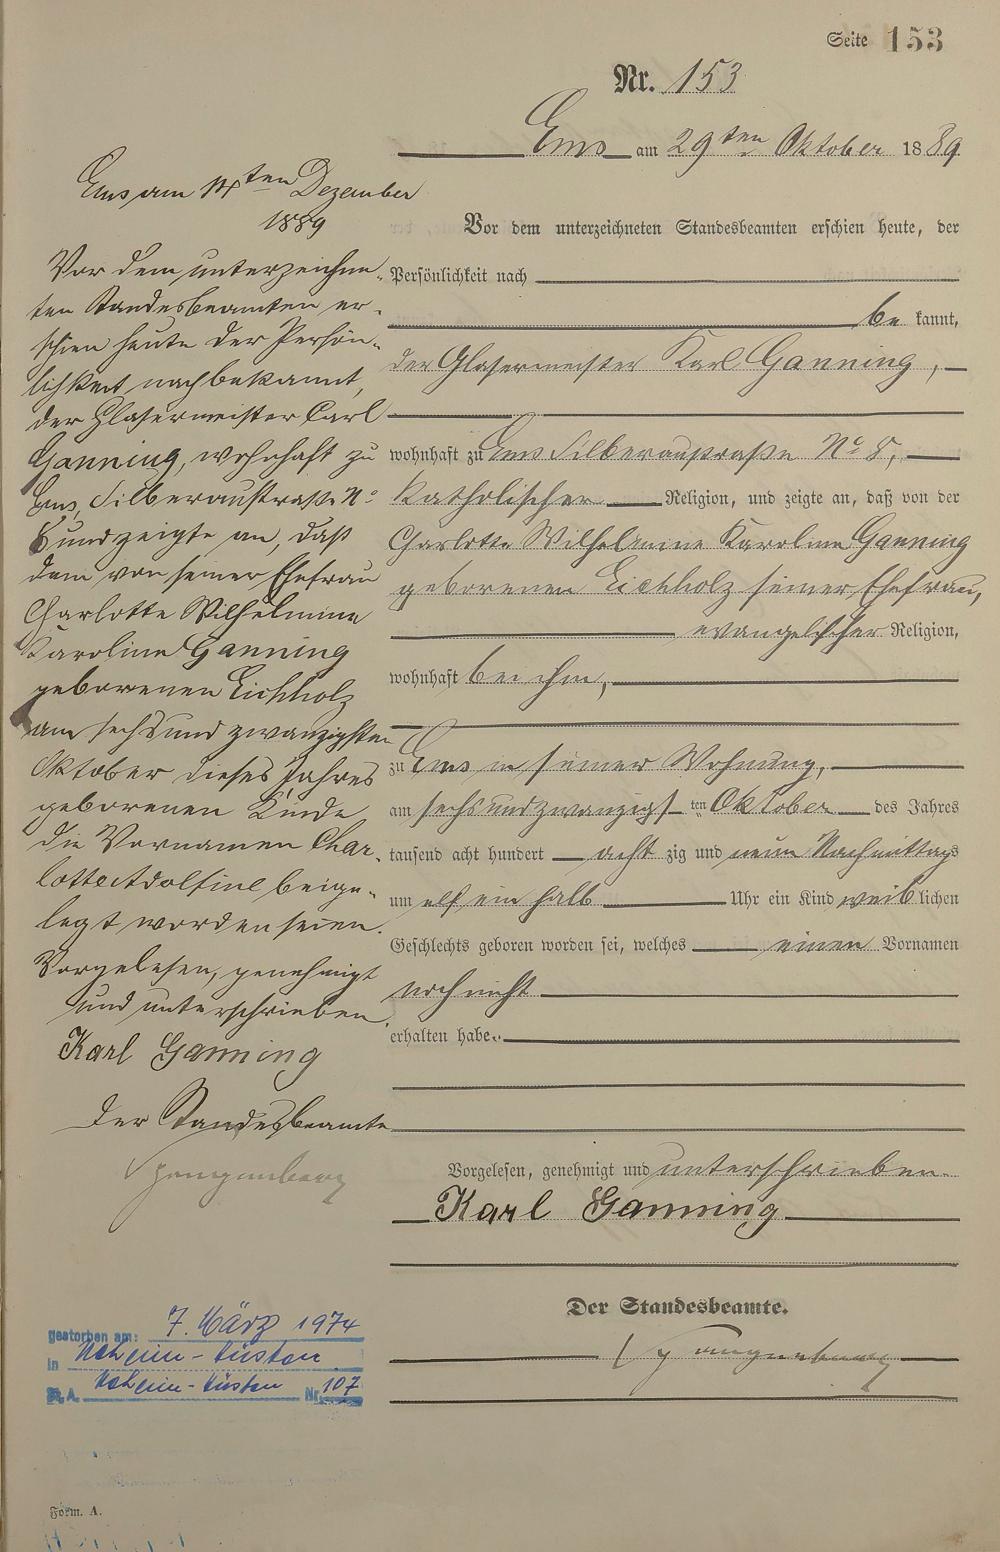 Seite 153
Nr. 153
Ems am 29ten Oktober 1889
Vor dem unterzeichneten Standesbeamten erschien heute, der
Persönlichkeit nach
be kannt,
der Glasermeister Karl Ganning,
wohnhaft zu Ems Silberaustraße No 8,
katholischer Religion, und zeigte an, daß von der
Charlotte Wilhelmine Karoline Ganning
geborenen Eichholz seiner Ehefrau,
evangelischer Religion,
wohnhaft bei ihm,
zu Ems in seiner Wohnung,
am sechsundzwanzigsten Oktober des Jahres
tausend acht hundert acht zig und neun Nachmittags
um elf ein halb Uhr ein Kind weiblichen
Geschlechts geboren worden sei, welches einen Vornamen
noch nicht
erhalten habe.
Vorgelesen, genehmigt und unterschrieben.
Karl Ganning
Der Standesbeamte.
Ems am ten Dezember
1889
Vor dem unterzeichne-
ten Standesbeamten er-
schien heute der Persön-
lichkeit nach bekannt,
der Glasermeister Carl
Ganning, wohnhaft zu
Ems, Silberaustraße No
8 und zeigte an, daß
dem von seiner Ehefrau
Charlotte Wilhelmine
Karoline Ganning
geborenen Eichholz
am sechsundzwanzigsten
Oktober dieses Jahres
geborenen Kinde
die Vornamen Char-
lotte Adolfine beige-
legt worden seien.
Vorgelesen, genehmigt
und unterschrieben.
Karl Ganning
Der Standesbeamte
gestorben am: 7. März 1974
in Neheim-Hüsten
St. A. Neheim-Hüsten Nr. 107
Form. A.